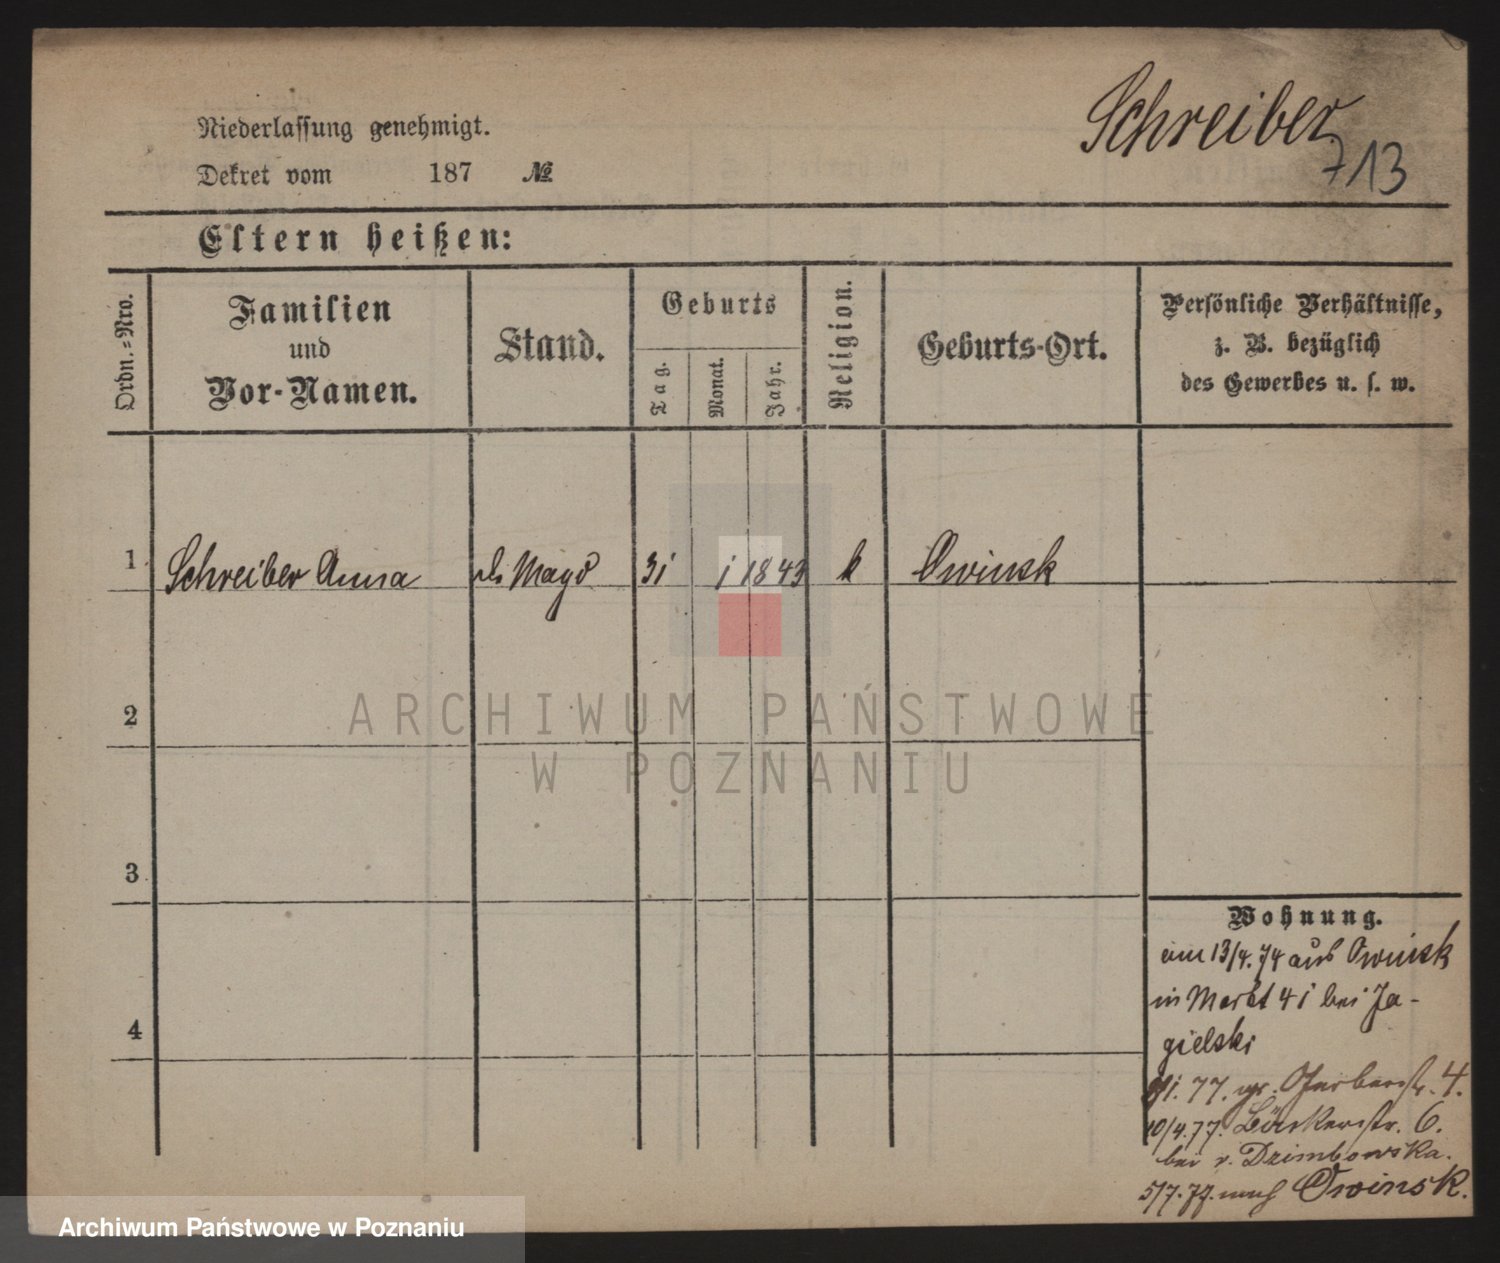 Schreiber
713
Niederlassung genehmigt.
Dekret vom 187 №
Eltern heißen:
Ordn.-Nro.
Familien
und
Vor-Namen.
Stand.
Geburts
Tag.
Monat.
Jahr.
Religion.
Geburts-Ort.
Persönliche Verhältnisse,
z. B. bezüglich
des Gewerbes u. s. w.
1 Schreiber Anna Magd 31 1 1843 k Owinsk
2
ARCHIWUM PAŃSTWOWE
W POZNANIU
3
4
Wohnung.
am 13/4. 74 aus Owinsk
in Markt 41 bei Ja-
gielski
1. 77. gr. Gerberstr. 4.
10/4. 77. Bäckerstr. 6.
bei v. Dzimbowska.
5/7. 77. nach Owinsk.
Archiwum Państwowe w Poznaniu